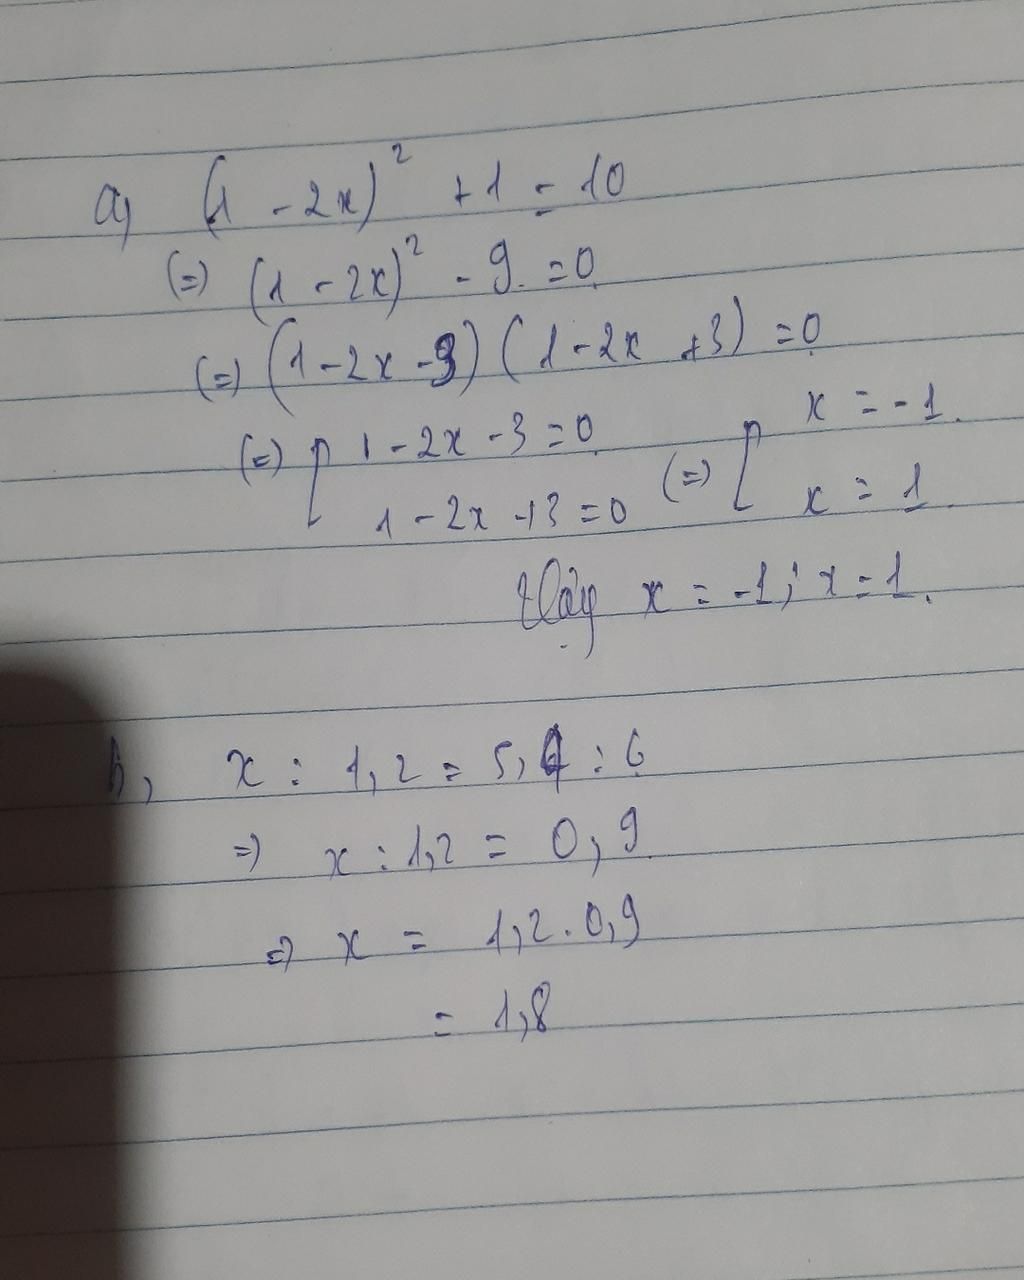 a, (1 - 2x)² + 1 = 10
(=) (1 - 2x)² - 9 = 0
(=) (1 - 2x - 3) (1 - 2x + 3) = 0
(=) [ 1 - 2x - 3 = 0 (=) [ x = -1.
1 - 2x + 3 = 0 x = 1.
Vậy x = -1; x = 1.
b, x : 1,2 = 5,4 : 6
=) x : 1,2 = 0,9
=) x = 1,2 . 0,9
= 1,8